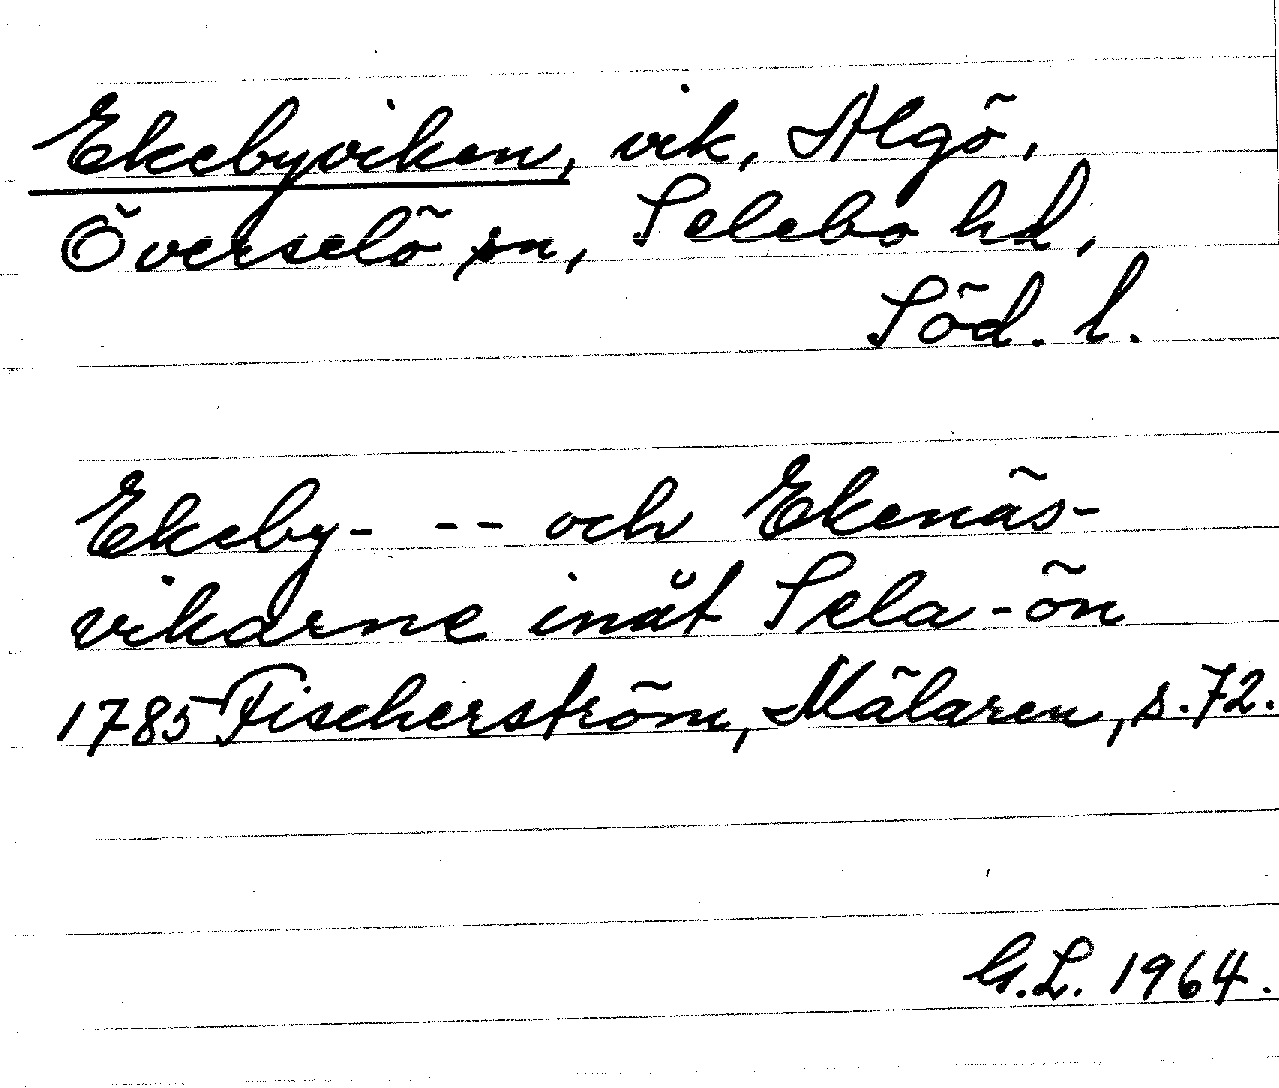 Ekebyviken, vik, Algö,
Överselö sn, Selebo hd,
Söd. l.
Ekeby- -- och Ekenäs-
vikarne inåt Sela-ön
1785 Fischerström, Mälaren, s. 72.
G.L. 1964.